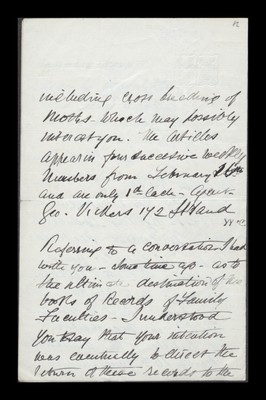 including cross breeding of
Moths - which may possibly
interest you. The Articles
appear in four successive weekly
Numbers from February
and are only 1d each - Agent
Geo. Vickers 172 Strand
Referring to a conversation I had
with you - some time ago - as to
the ultimate destination of the
books of Records of Family
Faculties - I understood
you to say that your intention
was eventually to direct the
return of these records to the